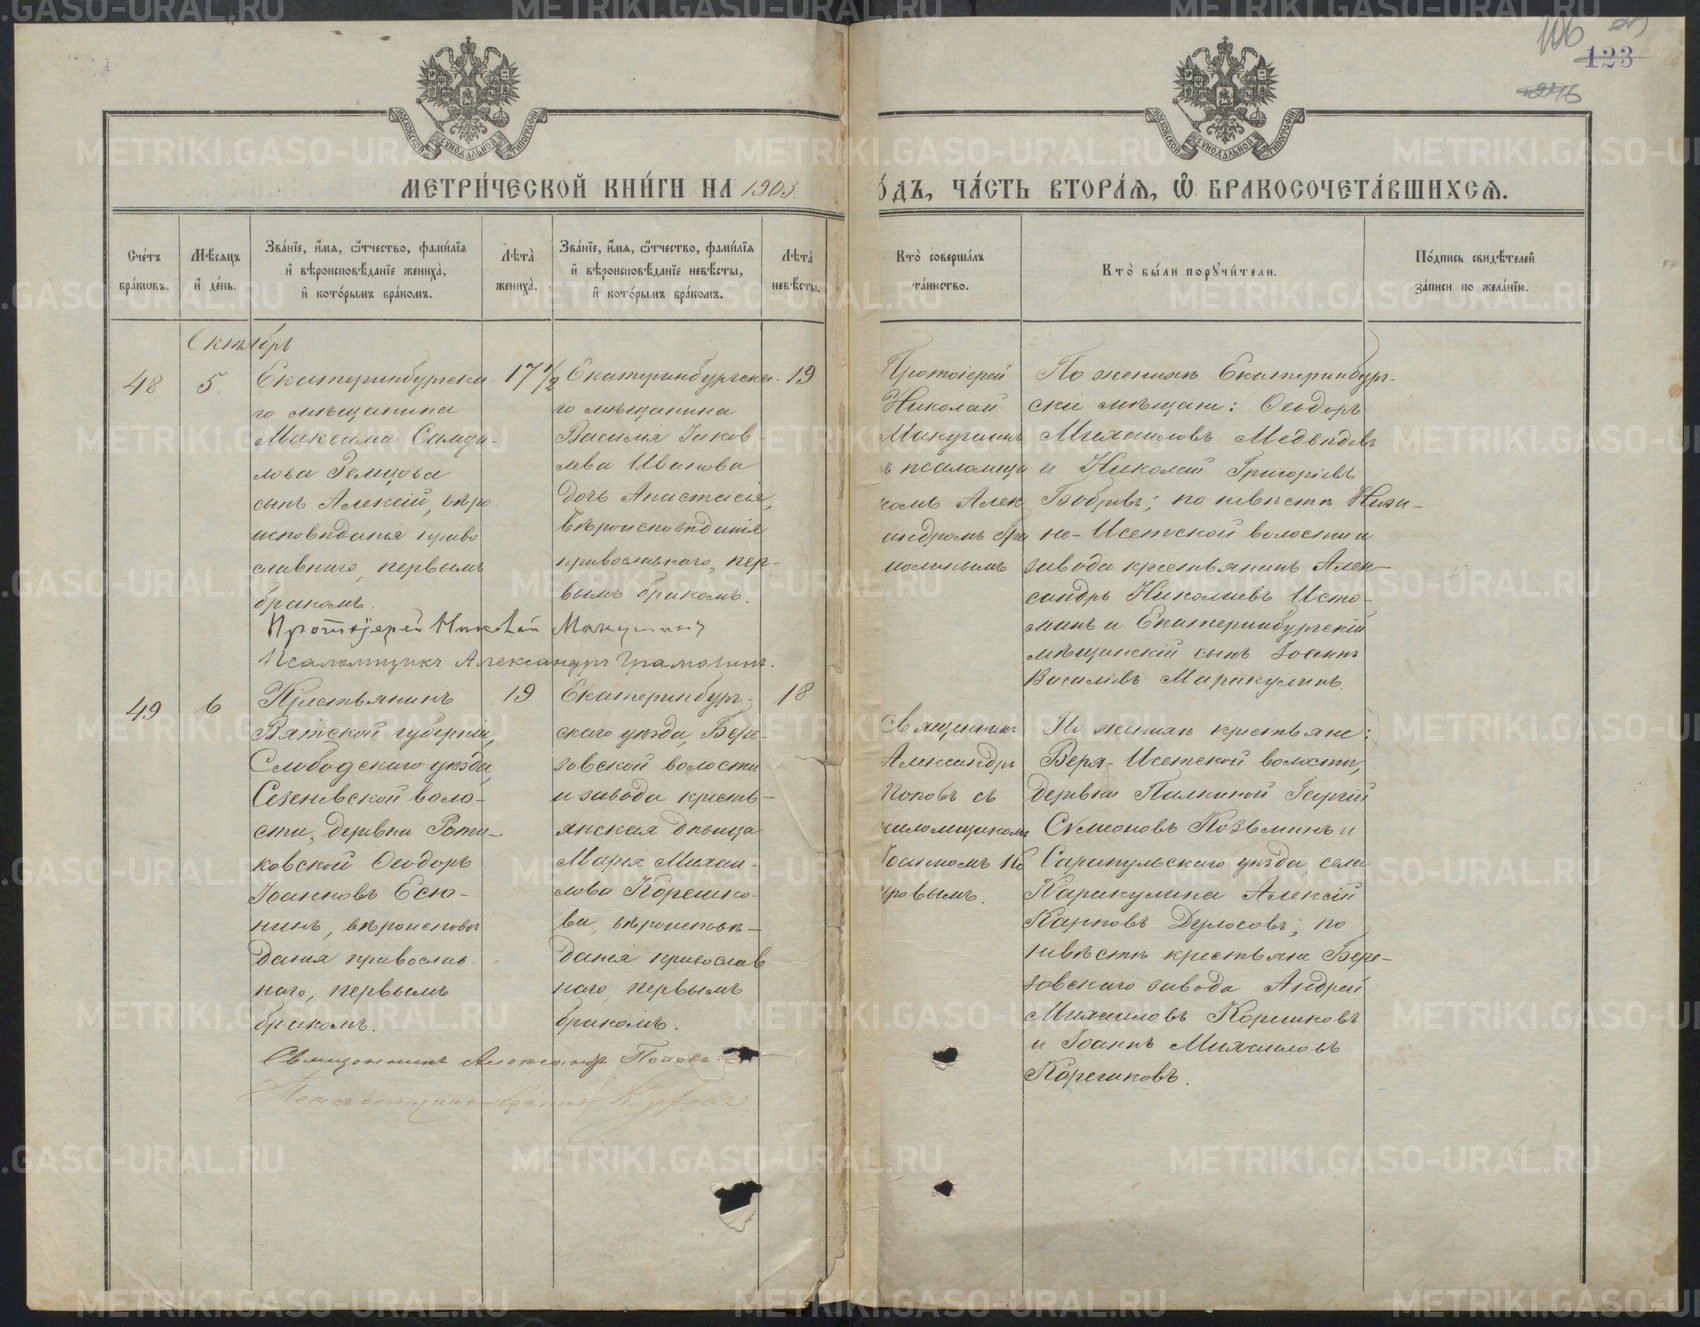 106
123
МЕТРИ́ЧЕСКОЙ КНИ́ГИ НА 1903
О́ДЪ, ЧА́СТЬ ВТОРА́Я, Ѽ БРАКОСОЧЕТА́ВШИХСЯ.
Сче́тъ бра́кѡвъ.
Мѣ́сяцъ и҆ де́нь.
Зва́нїе, и҆́мя, ѻ҆́тчество, фами́лїя и҆ вѣроисповѣ́данїе жениха̀, и҆ кото́рымъ бра́комъ.
Лѣта̀ жениха̀.
Зва́нїе, и҆́мя, ѻ҆́тчество, фами́лїя и҆ вѣроисповѣ́данїе невѣ́сты, и҆ кото́рымъ бра́комъ.
Лѣта̀ невѣ́сты.
Кто̀ соверша́лъ та́инство.
Кто̀ бы́ли поручи́тели.
По́дпись свидѣ́телей за́писи по жела́нїю.
Октябрь
48
5.
Екатеринбургска-
го мѣщанина
Максима
сынъ Алексій, вѣро-
исповѣданія право
славнаго, первымъ
бракомъ.
17 1/2
Екатеринбургска-
го мѣщанина
Василія Іаков-
лева Иванова
дочь Анастасія,
вѣроисповѣданія
православнаго, пер-
вымъ бракомъ.
19
Протоіерей
Николай
Макушинъ
ъ псаломщи
комъ Алек
андромъ Гра
молинымъ
По женихѣ Екатеринбург-
скіе мѣщане: Ѳеодоръ
Михаиловъ Медвѣдевъ
и Николай Григоріевъ
Бобровъ; по невѣстѣ Ниж-
не-Исетской волости и
завода крестьянинъ Алек-
сандръ Николаевъ Исто-
минъ и Екатеринбургскій
мѣщанскій сынъ Іоаннъ
Василіевъ Маракулинъ.
Протоіерей Николай Макушинъ
Псаломщикъ Александръ Грамолинъ.
49
6
Крестьянинъ
Вятской губерніи,
Слободскаго уѣзда,
Сезеневской воло-
сти, деревни
ковской Ѳеодоръ
Іоанновъ Есю-
нинъ, вѣроисповѣ
данія православ-
наго, первымъ
бракомъ.
19
Екатеринбург-
скаго уѣзда, Бере-
зовской волости
и завода кресть-
янская дѣвица
Марія Михаи-
лова Корешко-
ва, вѣроисповѣ-
данія православ
наго, первымъ
бракомъ.
18
Священникъ
Александръ
Поповъ съ
саломщикомъ
Іоанномъ Ко
ровымъ.
По женихѣ крестьяне:
Верх-Исетской волости,
деревни Палкиной Георгій
Сумеоновъ Козьминъ и
Сарапульскаго уѣзда села
Каракулина Алексій
Карповъ Дулосовъ; по
невѣстѣ крестьяне Бере-
зовскаго завода Андрей
Михаиловъ Корешковъ
и Іоаннъ Михаиловъ
Корешковъ.
Священникъ Александръ Поповъ.